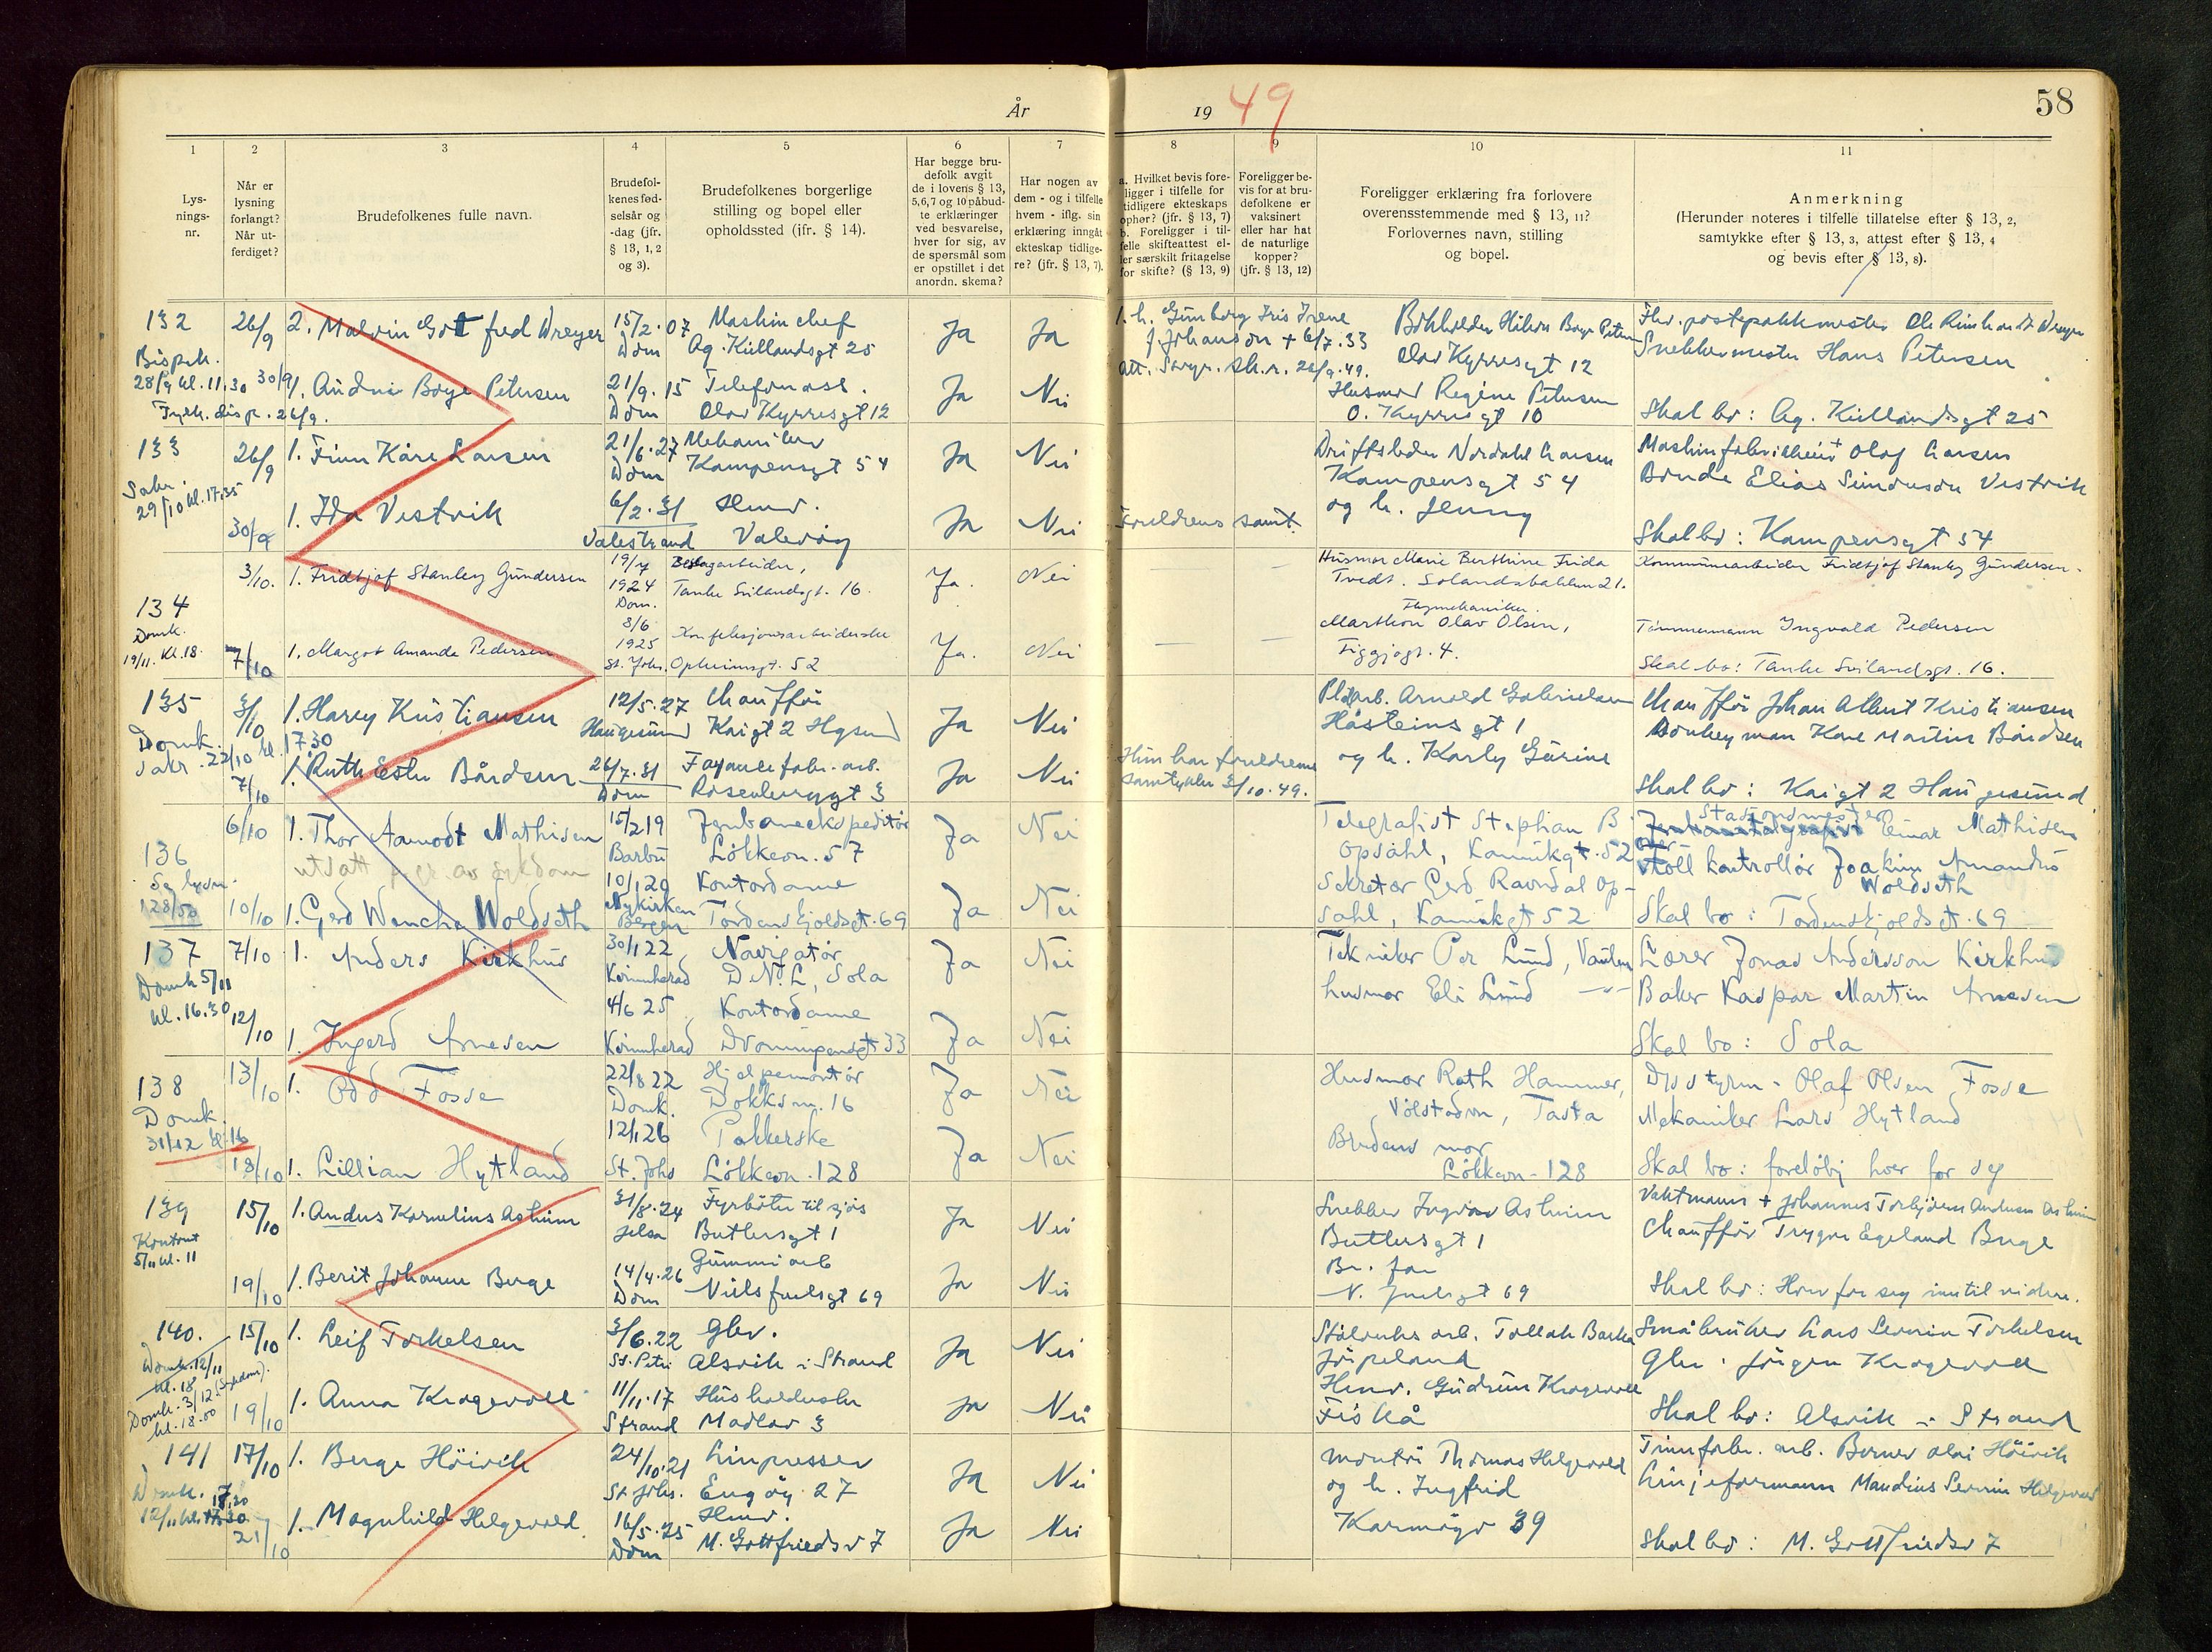 År 19 49
58
1
Lysnings-
nr.
2
Når er
lysning
forlangt?
Når ut-
ferdiget?
3
Brudefolkenes fulle navn.
4
Brudefol-
kenes fød-
selsår og
-dag (jfr.
§ 13, 1, 2
og 3).
5
Brudefolkenes borgerlige
stilling og bopel eller
opholdssted (jfr. § 14).
6
Har begge bru-
defolk avgit
de i lovens § 13,
5,6,7 og 10 påbud-
te erklæringer
ved besvarelse,
hver for sig, av
de spørsmål som
er opstillet i det
anordn. skema?
7
Har nogen av
dem - og i tilfelle
hvem - iflg. sin
erklæring inngåt
ekteskap tidlige-
re? (jfr. § 13, 7).
8
a. Hvilket bevis fore-
ligger i tilfelle for
tidligere ekteskaps
ophør? (jfr. § 13, 7)
b. Foreligger i til-
felle skifteattest el-
ler særskilt fritagelse
for skifte? (§ 13, 9)
9
Foreligger be-
vis for at bru-
defolkene er
vaksinert
eller har hat
de naturlige
kopper?
(jfr. § 13, 12)
10
Foreligger erklæring fra forlovere
overensstemmende med § 13, 11?
Forlovernes navn, stilling
og bopel.
11
Anmerkning
(Herunder noteres i tilfelle tillatelse efter § 13, 2,
samtykke efter § 13, 3, attest efter § 13, 4
og bevis efter § 13, 8).
132
26/9
2. Malvin Gottfred Dreyer
15/2.07
Dom
Maskinchef
Ag. Kiellandsgt 25
Ja
Ja
1. h. Gunborg Iris Irene
f. Johansson + 6/7.33
Olav Kyrresgt 12
Snekkermester Hans Petersen
28/9 kl. 11.30
30/9
1. Boye Petersen
21/9.15
Dom
Olav Kyrresgt 12
Ja
Nei
Husmor Regine Petersen
O. Kyrresgt 10
Skal bo: Ag. Kiellandsgt 25
133
26/9
1. Finn Kåre Larsen
21/6.27
Dom
Mekaniker
Kampensgt 54
Ja
Nei
Driftsleder Nordahl Larsen
Kampensgt 54
og h. Jenny
Olaf Larsen
Bonde Elias Simonson Vestvik
29/10 kl. 17.35
30/9
1. Ida Vestvik
6/2.31
Valestrand
Hmv.
Valevåg
Ja
Nei
Foreldrenes samt.
Skal bo: Kampensgt 54
134
Domk.
19/11. kl. 18.
3/10.
1. Fridtjof Stanley Gundersen
19/7
1924
Dom.
Ja.
Nei
Husmor Marie Berthine Frida
Tvedt. Solandsbakken 21.
Kommunearbeider Fridtjof Stanley Gundersen.
7/10
1. Margot Amanda Pedersen
8/6
1925
St. Joh.
Konfeksjonsarbeiderske
Opheimsgt. 52
Ja.
Nei
Flymekaniker.
Marthon Olav Olsen,
Figgjogt. 4.
Tømmermann Ingvald Pedersen
Skal bo: Tanke Svilandsgt. 16.
135
Domk.
3/10
1. Harry Kristiansen
12/5.27
Haugesund
Chauffør
Kaigt 2 Hgsund
Ja
Nei
Arnold Gabrielsen
Håsteinsgt 1
og h. Karly Gurine
Chauffør Johan Albert Kristiansen
Donkeyman Kåre Martin Bårdsen
22/10 kl. 17.30
7/10
1. Ruth Ester Bårdsen
26/7.31
Dom
Fayancefabr. arb.
Rosenberggt 3
Ja
Nei
Hun har foreldrenes
samtykke 3/10.49.
Skal bo: Kaigt 2 Haugesund
136
6/10
1. Thor Aamodt Mathisen
utsatt p.gr. av sykdom
15/2 19
Barbu
Jernbaneekspeditør
Løkkevn. 57
Ja
Nei
Telegrafist Stephan B.
Opsahl, Kannikgt. 52
Sekretær Gerd Ravndal Op-
sahl, Kannikgt 52
Stasjonsmester
Einar Mathisen
Over-
tollkontrollør Joakim Amandus
Woldseth
128/50
10/10
1. Gerd Wenche Woldseth
10/1 20
Nykirken
Bergen
Kontordame
Tordenskjoldsgt. 69
Ja
Nei
Skal bo: Tordenskjoldsgt. 69
137
Domk 5/11
kl. 16.30
7/10
1. Anders Kirkhus
30/1 22
Kvinnherad
Navigatør
D.N.L., Sola
Ja
Nei
Tekniker Per Lund,
husmor Eli Lund
Lærer Jonas Andersson Kirkhus
Baker Kaspar Martin Arnesen
12/10
1. Ingerd Arnesen
4/6 25
Kvinnherad
Kontordame
Dronningensgt 33
Ja
Nei
Skal bo: Sola
138
Domk.
31/12 kl. 16
13/10
1. Odd Fosse
22/8 22
Domk.
Hjelpemontør
Dokksm. 16
Ja
Nei
Husmor Ruth Hammer,
Vølstadvn, Tasta
Olaf Olsen Fosse
Mekaniker Lars Hytland
18/10
1. Lillian Hytland
12/1 26
St. Johs
Pakkerske
Løkkevn. 128
Ja
Nei
Brudens mor
Løkkevn - 128
Skal bo: foreløbig hver for seg
139
Kontoret
5/11 kl. 11
15/10
1. Anders Kornelius Asheim
31/8.24
Jelsa
Fyrbøter til sjøs
Butlersgt 1
Ja
Nei
Snekker Ingvar Asheim
Butlersgt 1
Vaktmann + Johannes Torbjørn Andersen Asheim
Chauffør Trygve Egeland Berge
19/10
1. Berit Johanne Berge
14/4.26
Dom
Gummiarb
Niels Juelsgt 69
Ja
Nei
Br. far
N. Juelsgt 69
Skal bo: Hver for seg inntil videre.
140.
Domk. 12/11
kl. 18 (Sykdom).
Domk. 3/12
kl. 18.00
15/10
1. Leif Torkelsen
3/6.22
St. Petri
Gbr.
Alsvik i Strand
Ja
Nei
Jørpeland
Småbruker Lars Severin Torkelsen
Gbr. Jørgen Kragevoll
19/10
1. Anna Kragevoll
11/11.17
Strand
Husholderske
Madlav 3
Ja
Nei
Hmv. Gudrun Kragevoll
Fiskå
Skal bo: Alsvik i Strand
141
Domk. 17.30
17/10
1. Berge Høivik
24/10.21
St. Johs.
Linpresser
Engøy 27
Ja
Nei
Montør Thomas Helgevold
og h. Ingfrid
Karmøygt 39
Berner Olai Høivik
Linjeformann Maudius Severin Helgevold
21/10
1. Magnhild Helgevold
16/5.25
Dom
Hmv.
M. Gottfriedsv 7
Ja
Nei
Skal bo: M. Gottfriedsv 7